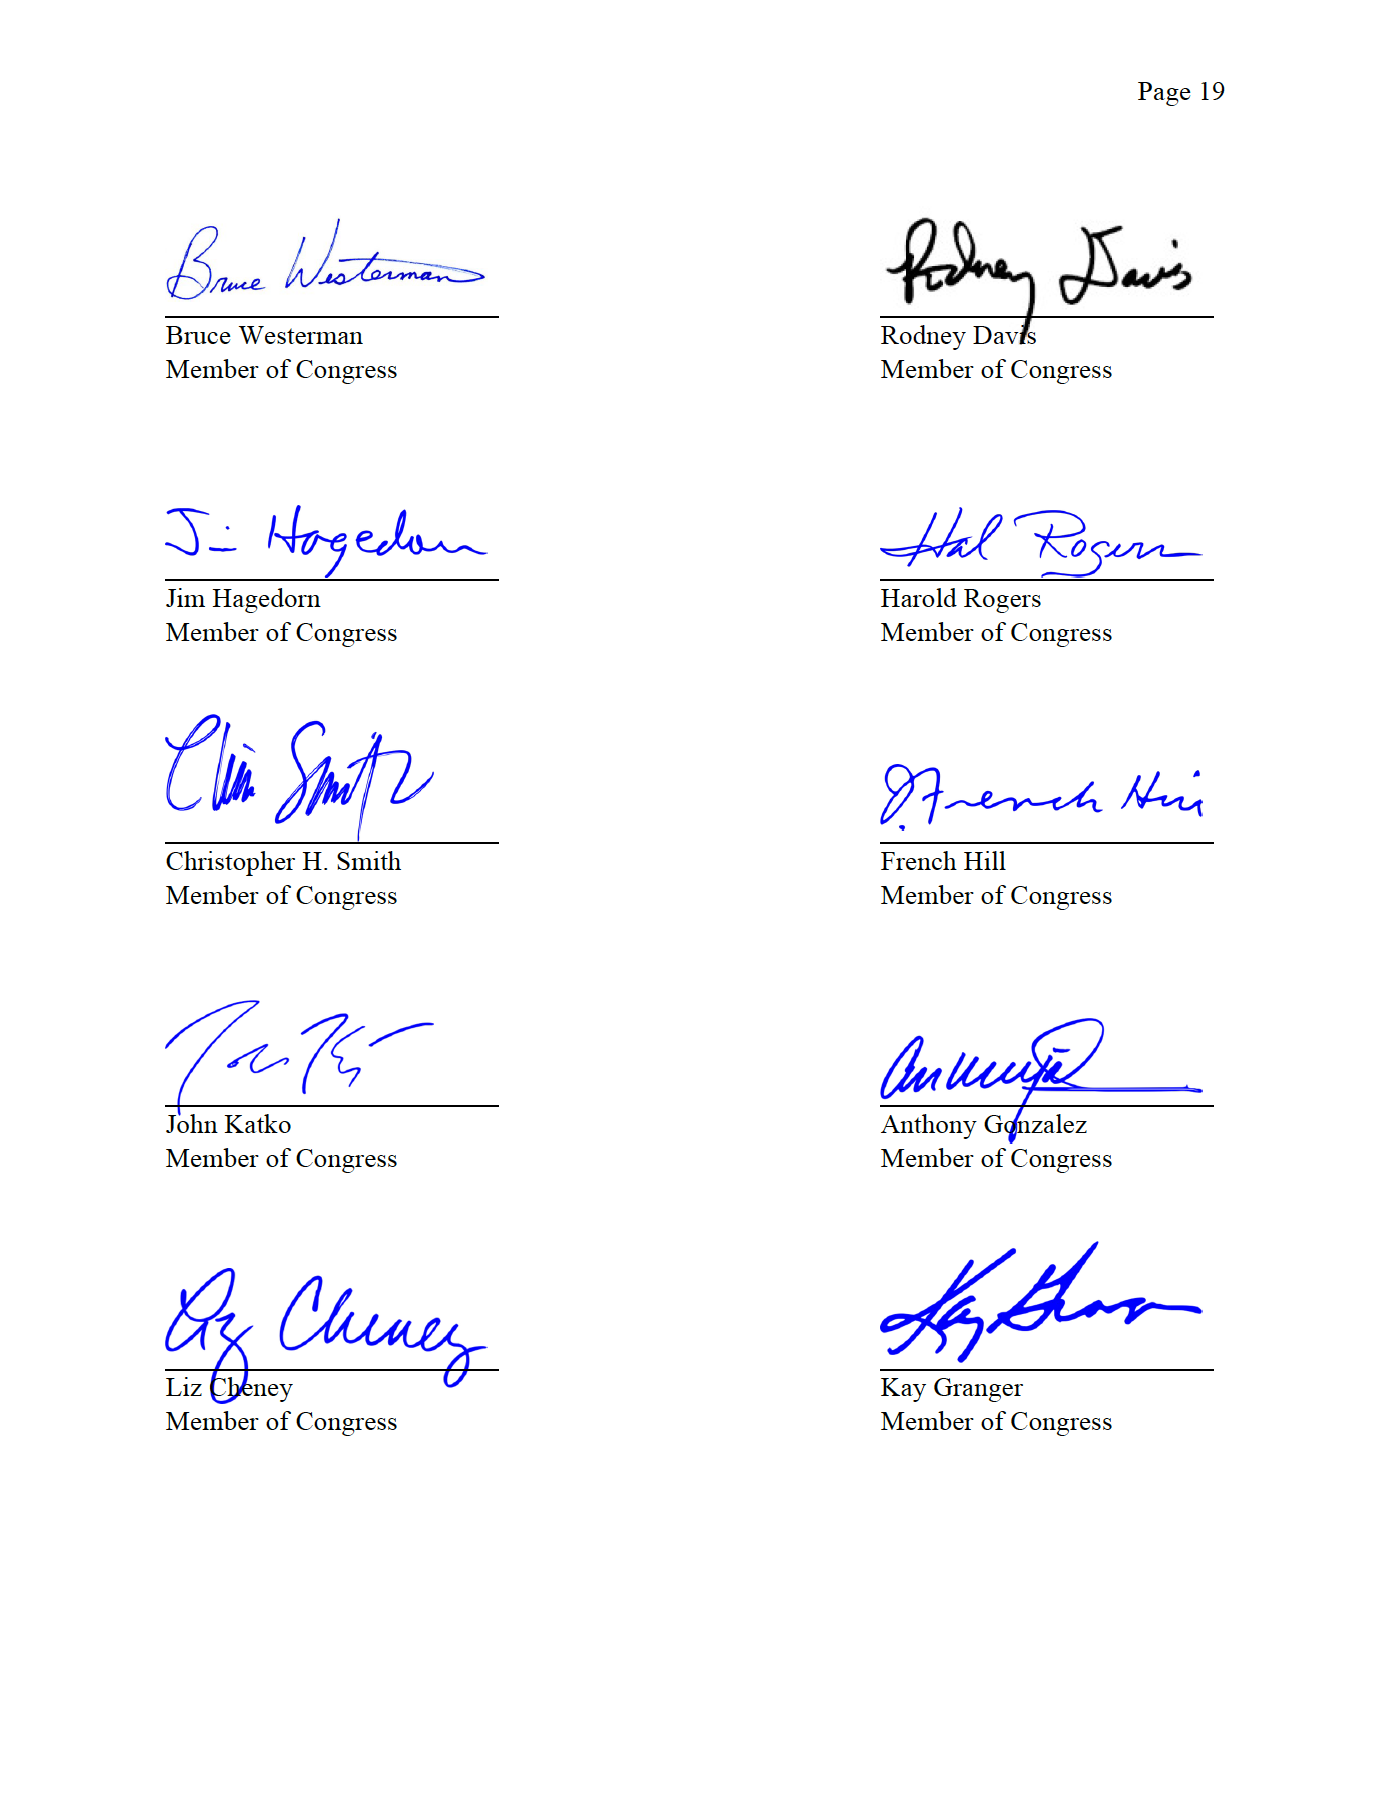 Page 19
Bruce Westerman
Rodney Davis
Bruce Westerman
Member of Congress
Rodney Davis
Member of Congress
Jim Hagedorn
Hal Rogers
Jim Hagedorn
Member of Congress
Harold Rogers
Member of Congress
Chris Smith
J. French Hill
Christopher H. Smith
Member of Congress
French Hill
Member of Congress
John Katko
Member of Congress
Anthony Gonzalez
Member of Congress
Liz Cheney
Kay Granger
Liz Cheney
Member of Congress
Kay Granger
Member of Congress